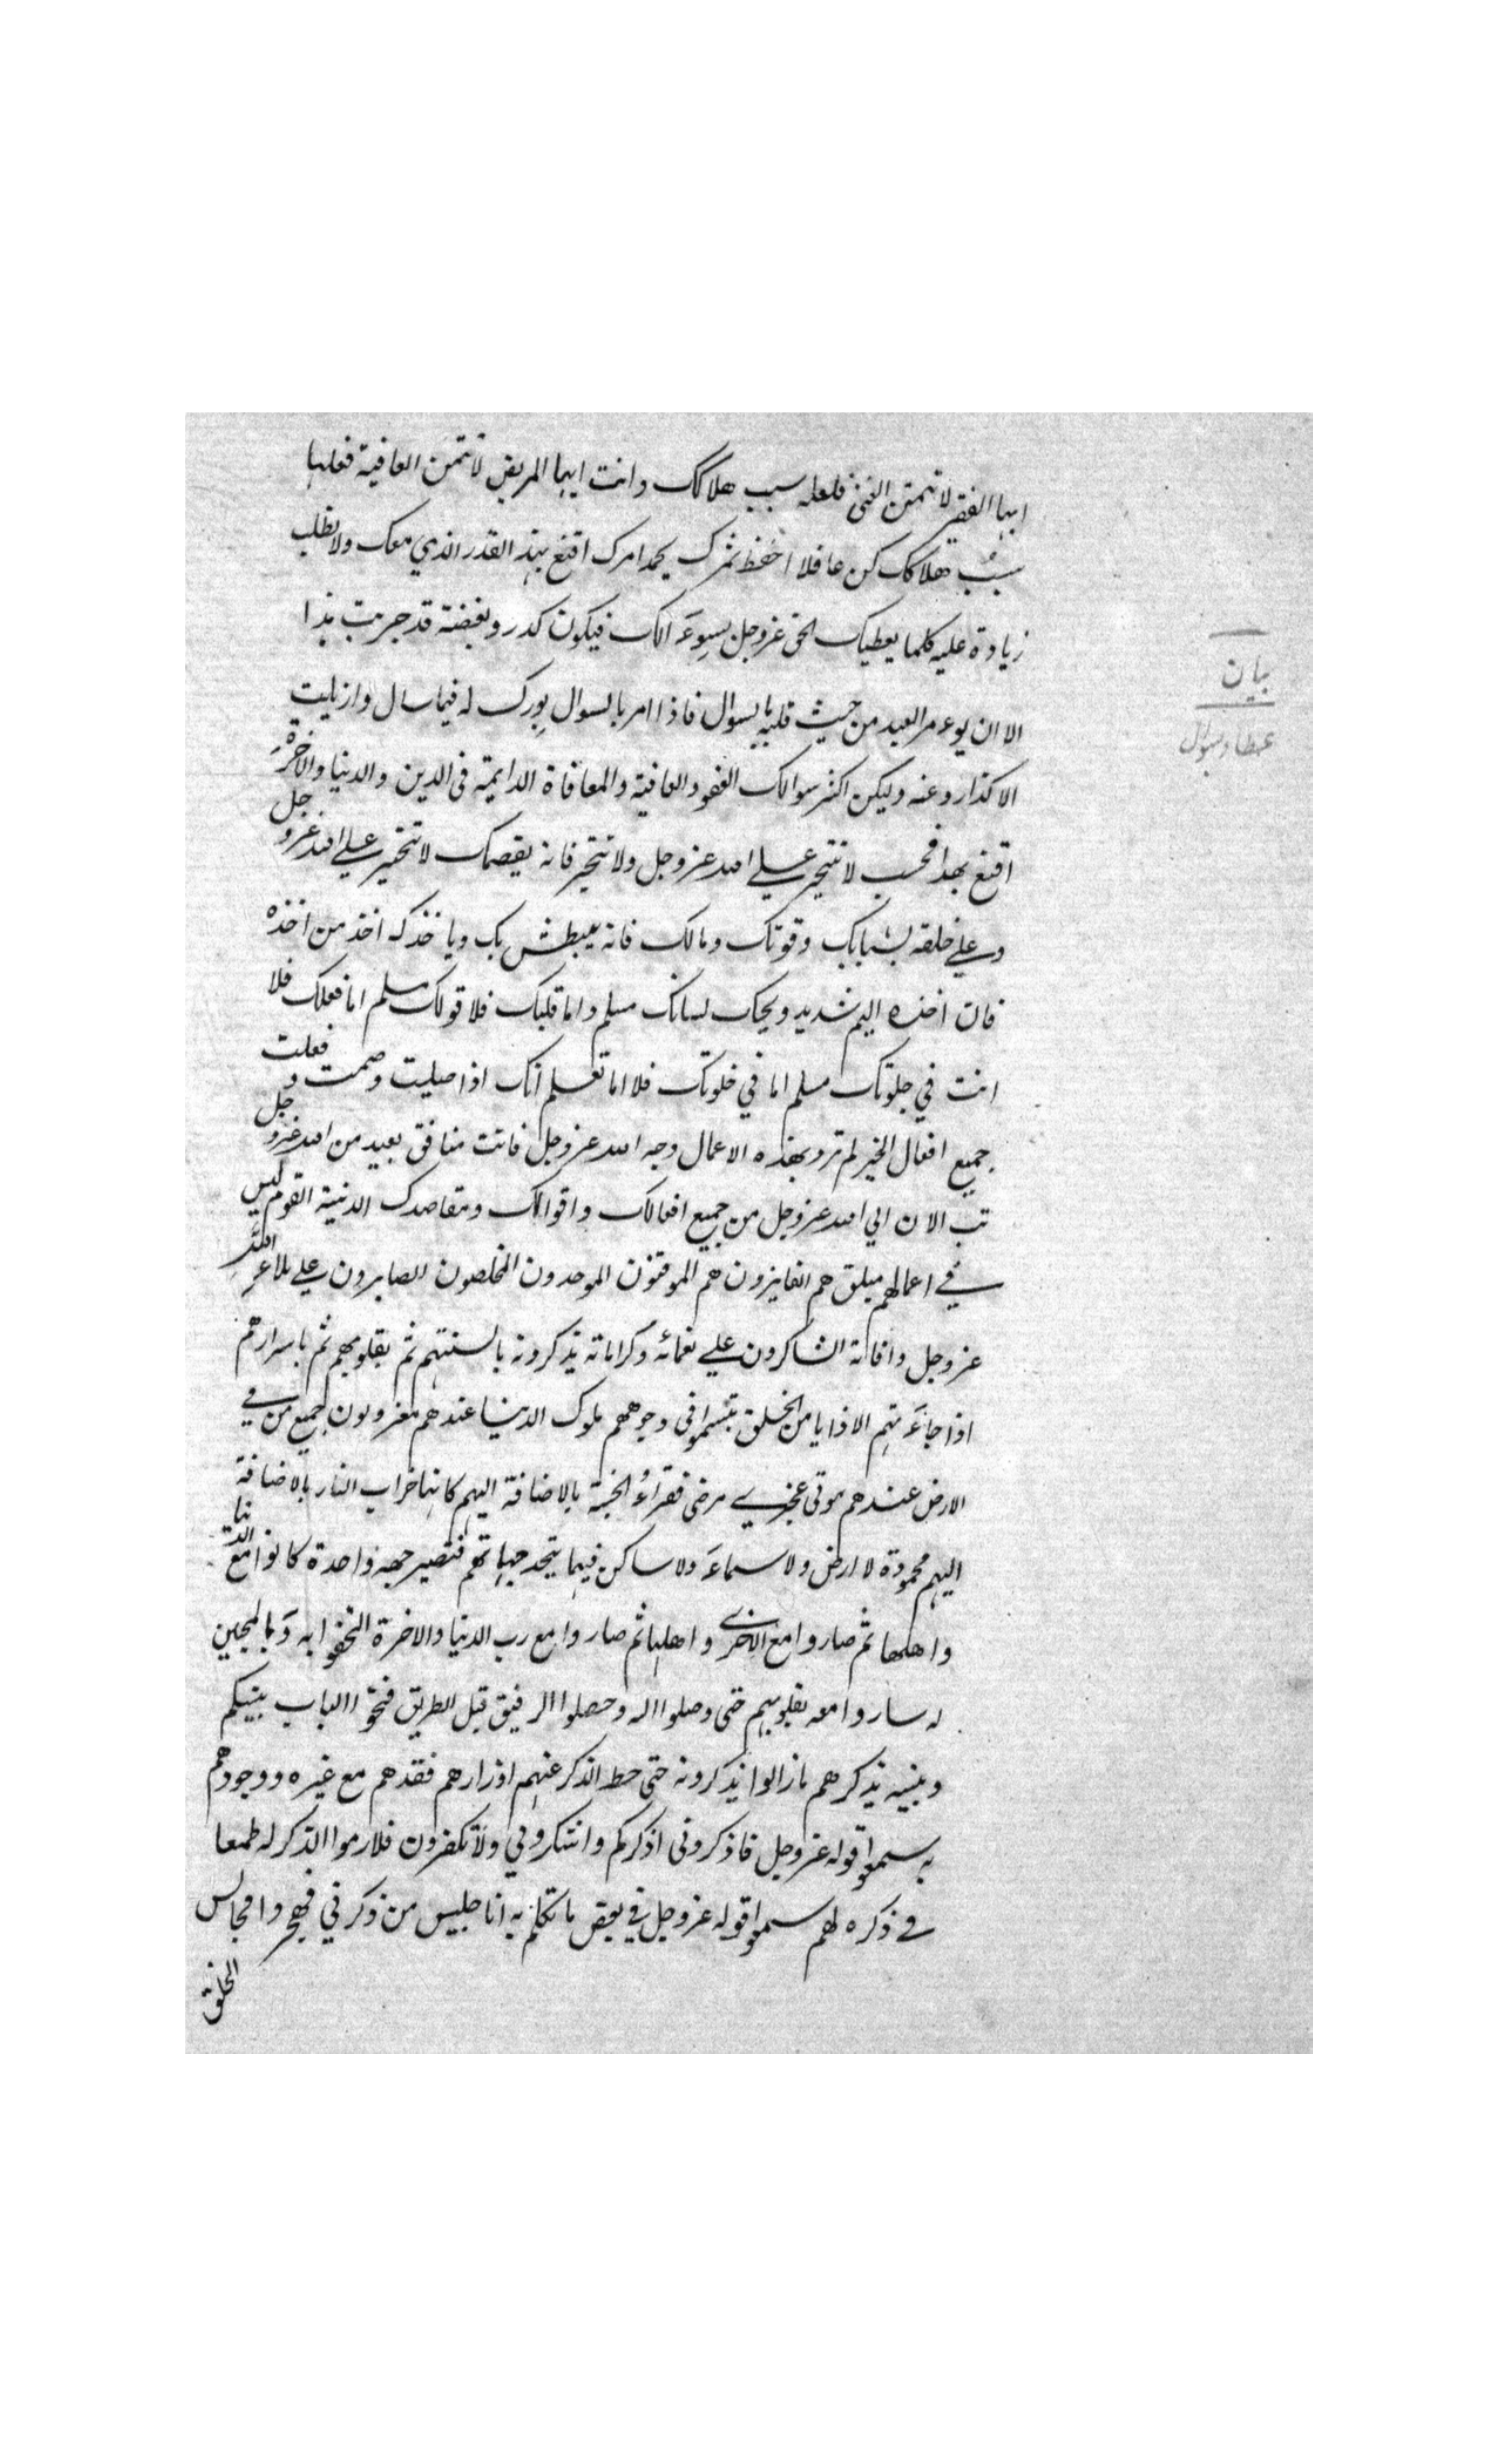 ايها الفقير لا تتمنى الغنى فلعله سبب هلاكك وانت ايها المريض لا تتمن العافية فعلها
سبب هلاكك كن عاقلا احفظ ثمرك يحمد امرك اقنع بهذ القدر الذي معك ولا تطلب
زيادة عليه كلما يعطيك الحق عزوجل بسوءالك فيكون كدر وبغضة قد جربت هذا
الا ان يوءمر العبد من حيث قلبه بالسوال فاذا امر بالسوال بورك له فيما سال وازيلت
الاكدار وعنه وليكن اكثر سوالك العفو والعافية والمعافاة الدايمة فى الدين والدنيا والاخرة
اقنع بهذا فحسب لا تتخير على الله عز وجل ولا تتجبر فانه يقصمك لا تتخير على الله عز وجل
وعلى خلقه بشبابك وقوتك ومالك فانه يبطش بك وياخذك اخذ من اخذه
فان اخذه اليم شديد ويحك لسانك مسلم واما قلبك فلا قولك مسلم اما فعلك فلا
انت في جلوتك مسلم اما في خلوتك فلا اما تعلم انك اذا صليت وصمت وفعلت
جميع افعال الخير لم ترد بهذه الاعمال وجه الله عز وجل فانت منافق بعيد من الله عز وجل
تب الان الي الله عز وجل من جميع افعالك واقوالك ومقاصدك الدنية القوم ليس
في اعمالهم ملق هم الفايزون هم الموقنون الموحدون المخلصون الصابرون على بلاء الله
عز وجل وافاته الشاكرون على نعمائه وكراماته يذكرونه بالسنتهم ثم بقلوبهم ثم باسرارهم
اذا جاءتهم الاذايا من الخلق تبسموا فى وجوههم ملوك الدنيا عندهم معزولون جميع من في
الارض عندهم موتى عجزى مرضى فقراء الجنة بالاضافة اليهم كانها خراب النار بالاضافة
اليهم محمودة لا ارض ولا سماء ولا ساكن فيها يتحد جهاتهم فتصير جهة واحدة كانوا مع الدنيا
واهلها ثم صاروا مع الاخرى واهلها ثم صاروا مع رب الدنيا والاخرة التحفوا به وبالمحبين
له ساروا معه بقلوبهم حتى وصلوا اله وحصلوا الرفيق قبل الطريق فتحوا الباب بينكم
وبينه يذكرهم مازالوا يذكرونه حتى حط الذكر عنهم اوزارهم فقدهم مع غيره ووجودهم
به سمعوا قوله عز وجل فاذكرونى اذكركم واشكرولي ولا تكفرون فلازموا الذكر له طمعا
في ذكره لهم سمعوا قوله عز وجل في بعض ما تكلم به انا جليس من ذكرني فهجروا مجالس
الخلق
بيان
عطا و سوال